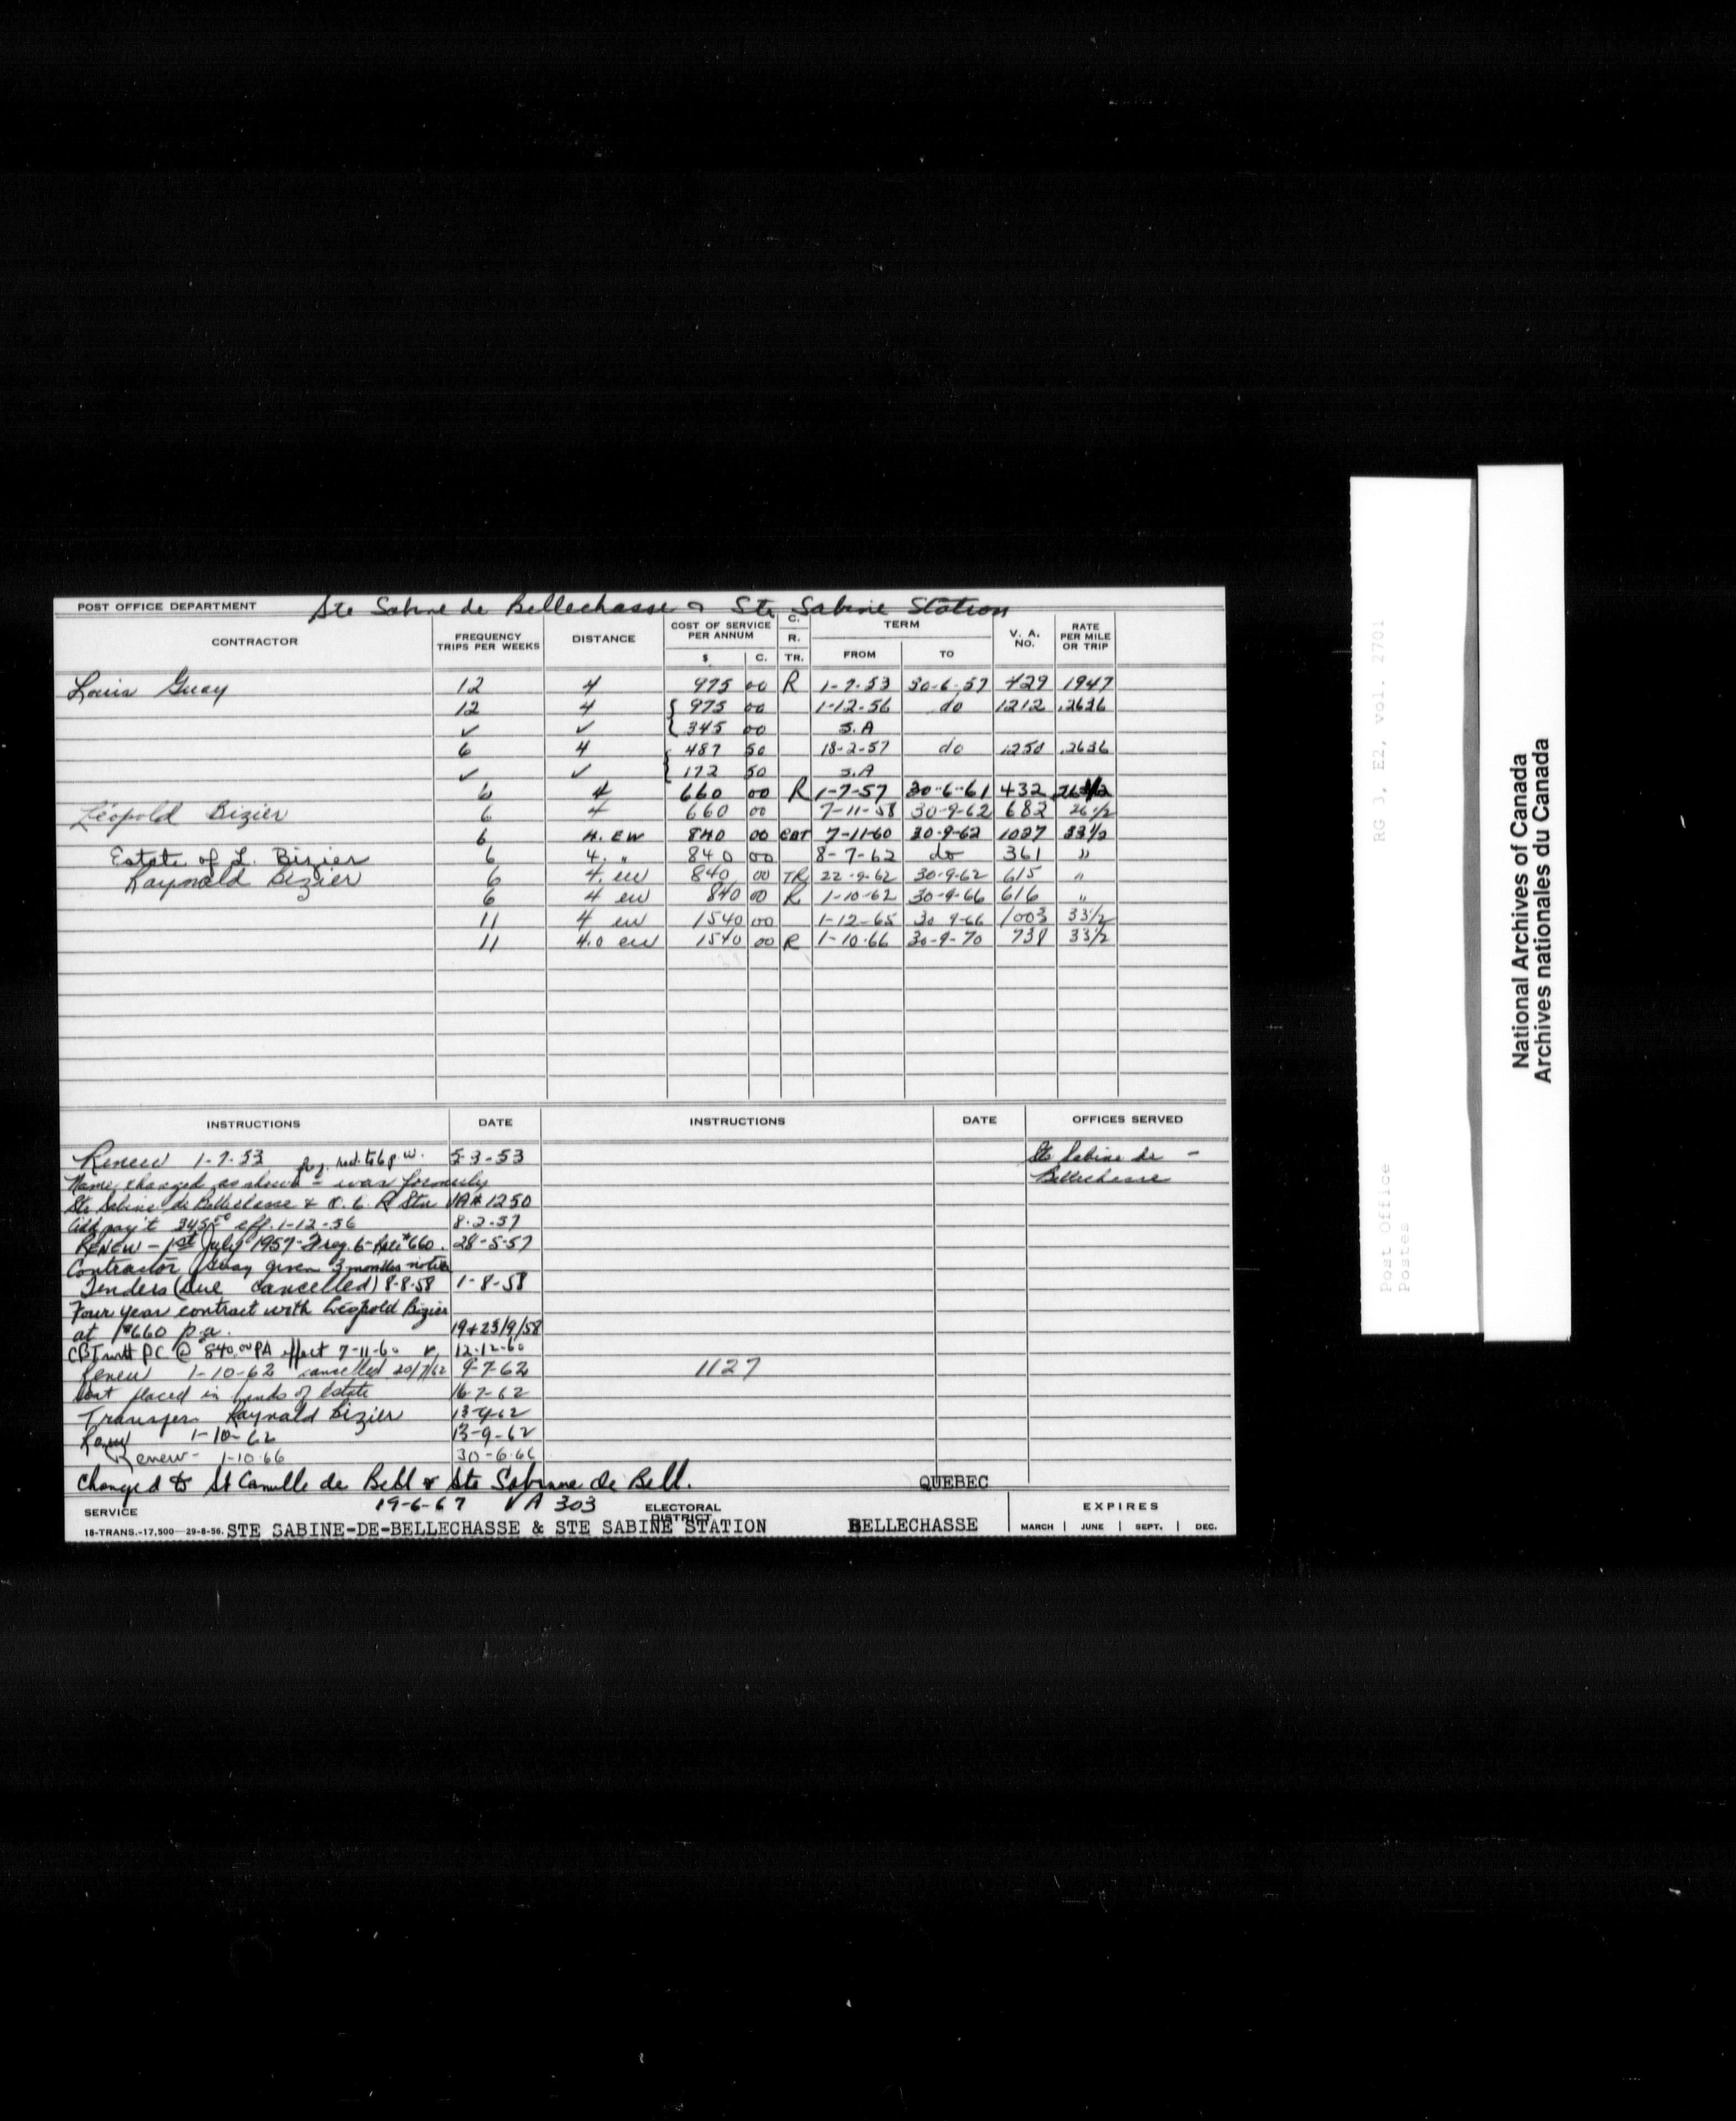 POST OFFICE DEPARTMENT Ste Sabine de Bellechasse & Ste Sabine Station
CONTRACTOR FREQUENCY TRIPS PER WEEKS DISTANCE COST OF SERVICE PER ANNUM $ C. C. R. TR. TERM FROM TO V. A. NO. RATE PER MILE OR TRIP
Louis Guay 12 4 975 00 R 1-7-53 30-6-57 429 1947
12 4 { 975 00 1-12-56 do 1212 .2636
✓ ✓ { 345 00 S.A
6 4 { 487 50 18-2-57 do 1250 .2636
✓ ✓ { 172 50 S.A
6 4 660 00 R 1-7-57 30-6-61 432
Léopold Bizier 6 4 660 00 7-11-58 30-9-62 682 26 1/2
6 4. EW 840 00 CBT 7-11-60 30-9-62 1027 33 1/2
Estate of L. Bizier 6 4. " 840 00 8-7-62 do 361 "
Raynald Bizier 6 4. ew 840 00 TR 22-9-62 30-9-62 615 "
6 4 ew 840 00 R 1-10-62 30-9-66 616 "
11 4 ew 1540 00 1-12-65 30-9-66 1003 33 1/2
11 4.0 ew 1540 00 R 1-10-66 30-9-70 738 33 1/2
INSTRUCTIONS DATE INSTRUCTIONS DATE OFFICES SERVED
Renew 1-7-53 red. to 6 p.w. 5-3-53 Ste Sabine de -
Name changed as shown - was formerly Bellechasse
Ste Sabine de Bellechasse & Stn VA# 1250
Add pay't eff. 1-12-56 8-2-57
RENEW - 1st July 1957 - Freq. 6 - Rate $660. 28-5-57
Contractor Guay given 3 months notice
Tenders (due cancelled) 8-8-58 1-8-58
Four year contract with Léopold Bizier
at $660 p.a. 19+23/9/58
CBT with PC @ $840.00 PA effect 7-11-60 12-12-60
Renew 1-10-62 cancelled 20/7/62 9-7-62 1127
Cont placed in hands of Estate 16-7-62
Transfer Raynald Bizier 13-9-62
Renew 1-10-62 13-9-62
Renew - 1-10-66 30-6-66
Changed to St Camille de Bell & Ste Sabine de Bell. QUEBEC
19-6-67 VA 303
SERVICE ELECTORAL DISTRICT EXPIRES
18-TRANS.-17,500—29-8-56. STE SABINE-DE-BELLECHASSE & STE SABINE STATION BELLECHASSE MARCH | JUNE | SEPT. | DEC.
RG 3, E2, vol. 2701
Post Office
Postes
National Archives of Canada
Archives nationales du Canada